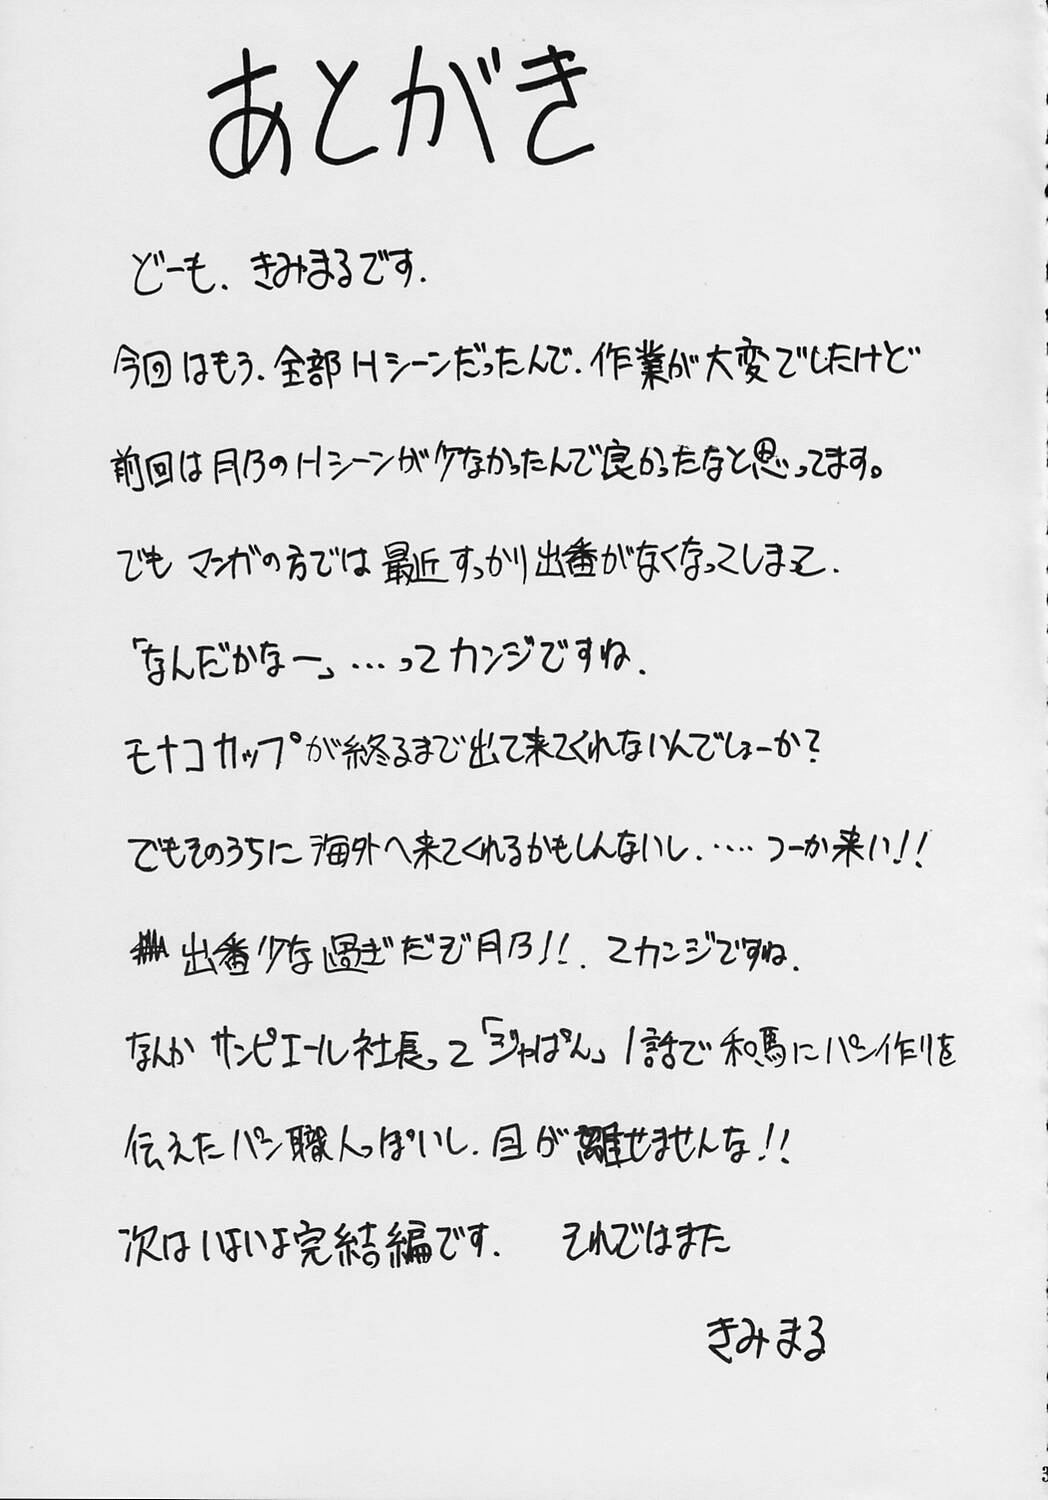 あとがき
どーも、きみまるです.
今回はもう、全部Hシーンだったんで、作業が大変でしたけど
前回は月乃のHシーンが少なかったんで良かったなと思ってます。
でもマンガの方では最近すっかり出番がなくなってしまって、
「なんだかなー」…ってカンジですね.
モナコカップが終るまで出て来てくれないんでしょーか?
でもそのうちに海外へ来てくれるかもしんないし、……つーか来い!!
出番少な過ぎだぞ月乃!!、てカンジですね.
なんかサンピエール社長って「ジャぱん」1話で和馬にパン作りを
伝えたパン職人っぽいし、目が離せませんな!!
次はいよいよ完結編です. それではまた
きみまる
3